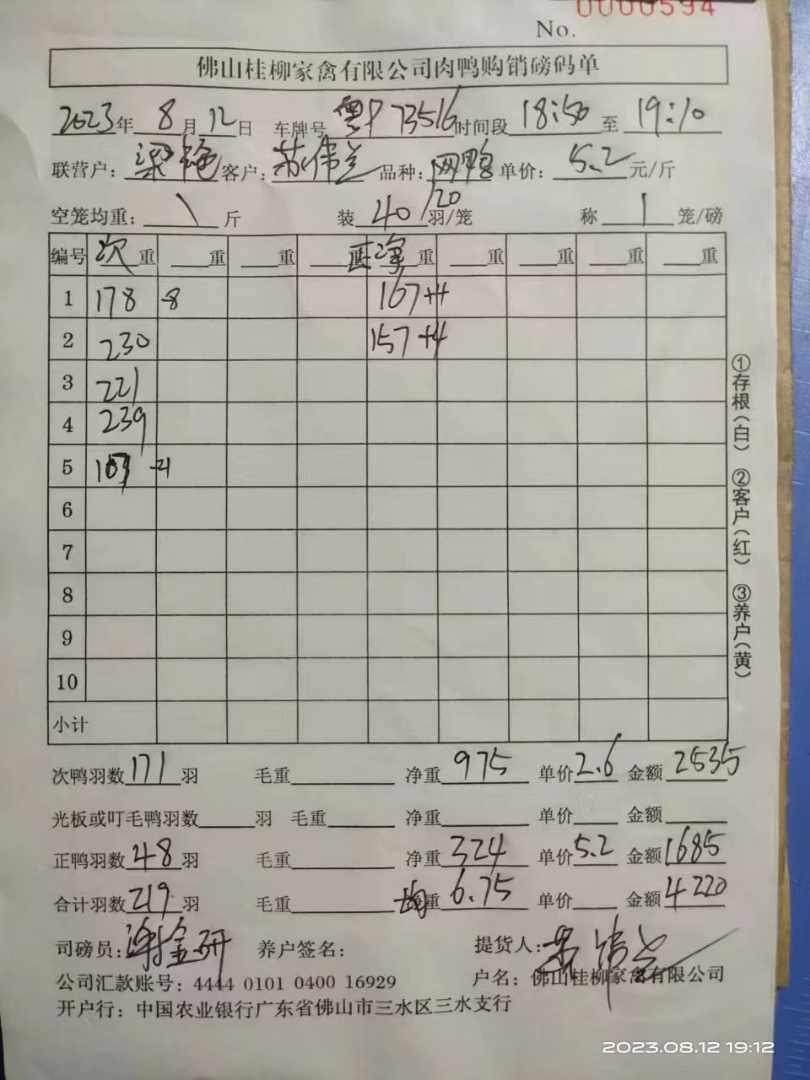 0000594
No.
佛山桂柳家禽有限公司肉鸭购销磅码单
2023年 8月12日 车牌号 粤P 73516 时间段 18:50 至 19:10
联营户: 梁艳 客户: 苏伟兰 品种: 网鸭 单价: 5.2 元/斤
空笼均重: \ 斤 装 40/20 羽/笼 称 1 笼/磅
编号 次重 重 重 正净重 重 重 重 重
1 178 -8 167+4
2 230 157+4
3 221
4 239
5 107 -21
6
7
8
9
10
小计
次鸭羽数 171 羽 毛重 净重 975 单价 2.6 金额 2535
光板或叮毛鸭羽数 羽 毛重 净重 单价 金额
正鸭羽数 48 羽 毛重 净重 324 单价 5.2 金额 1685
合计羽数 219 羽 毛重 均重 6.75 单价 金额 4220
司磅员: 谢金研 养户签名: 提货人: 苏伟兰
公司汇款账号: 4444 0101 0400 16929 户名: 佛山桂柳家禽有限公司
开户行: 中国农业银行广东省佛山市三水区三水支行
①存根(白) ②客户(红) ③养户(黄)
2023.08.12 19:12